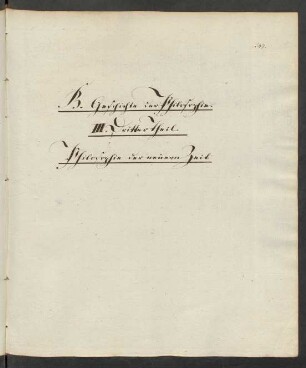 B. Geschichte der Philosophie.
III. Dritter Theil.
Philosophie der neuern Zeit